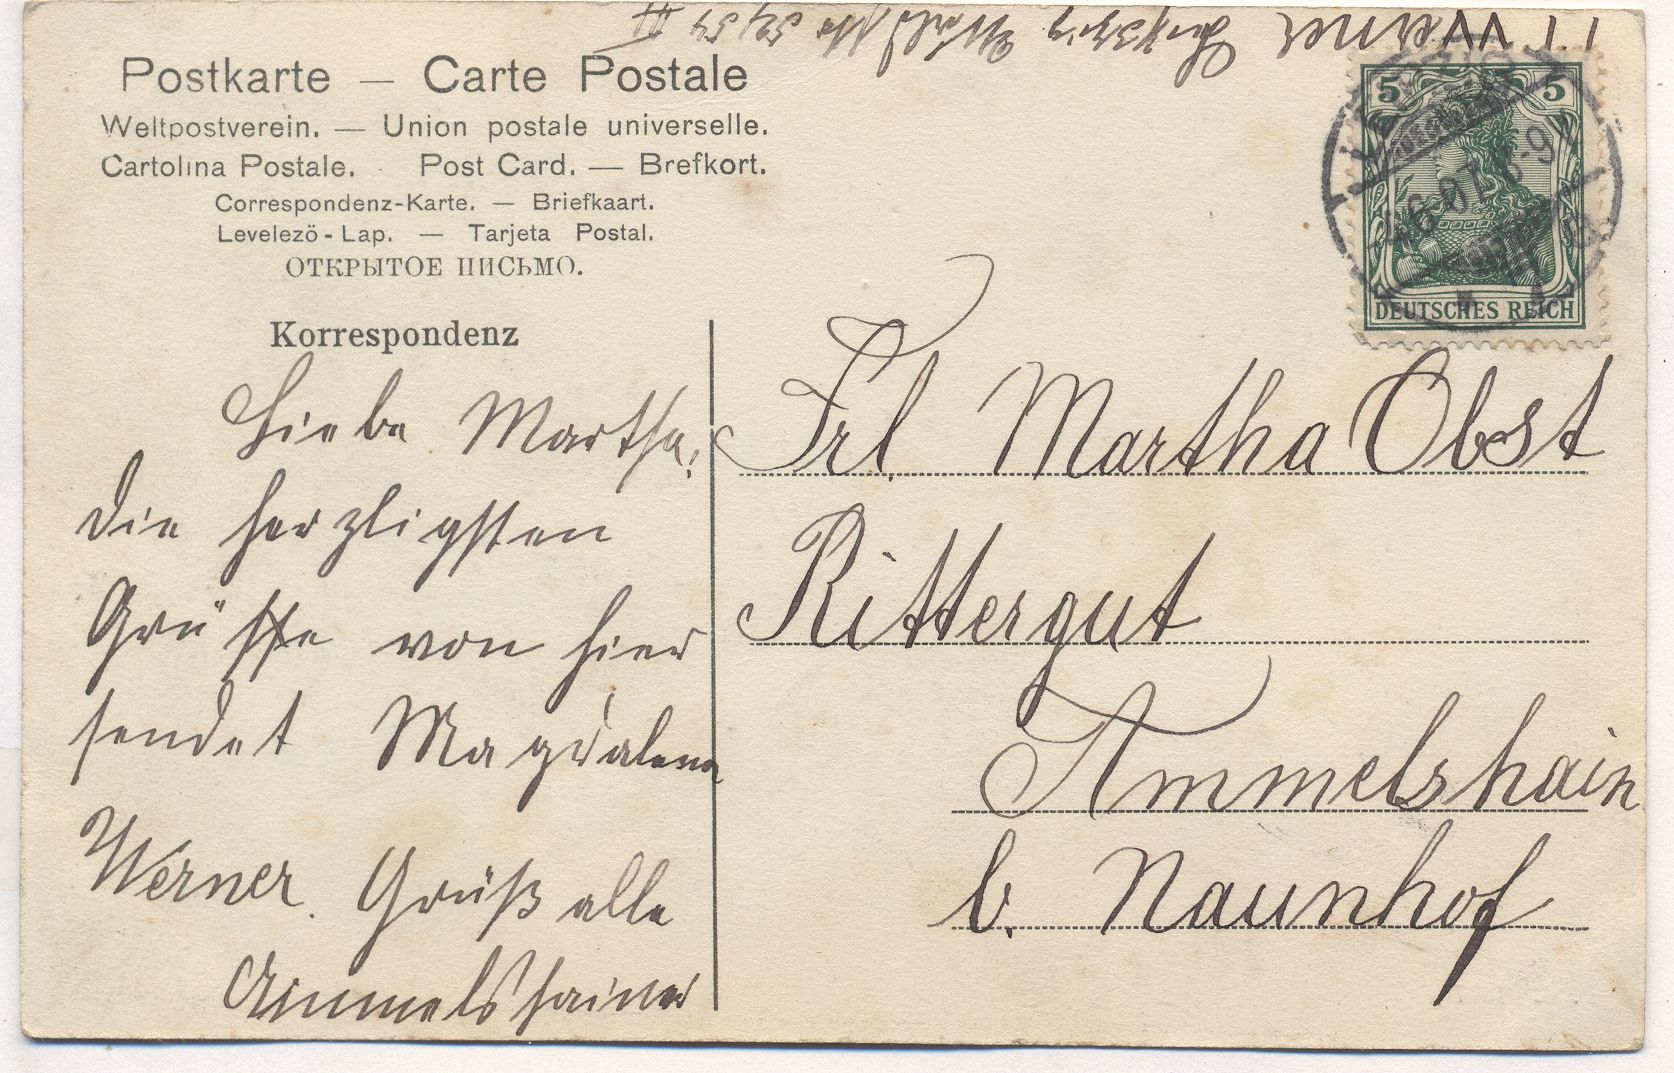 Postkarte — Carte Postale
Weltpostverein. — Union postale universelle.
Cartolina Postale. Post Card. — Brefkort.
Correspondenz-Karte. — Briefkaart.
Levelezö-Lap. — Tarjeta Postal.
ОТКРЫТОЕ ПИСЬМО.
Korrespondenz
Liebe Martha,
die herzligsten
Grüsse von hier
sendet Magdalena
Werner. Grüß alle
Ammelshainer
Werner Leipzig
5 5
6 07
DEUTSCHES REICH
Frl. Martha Obst
Rittergut
Ammelshain
b. Naunhof